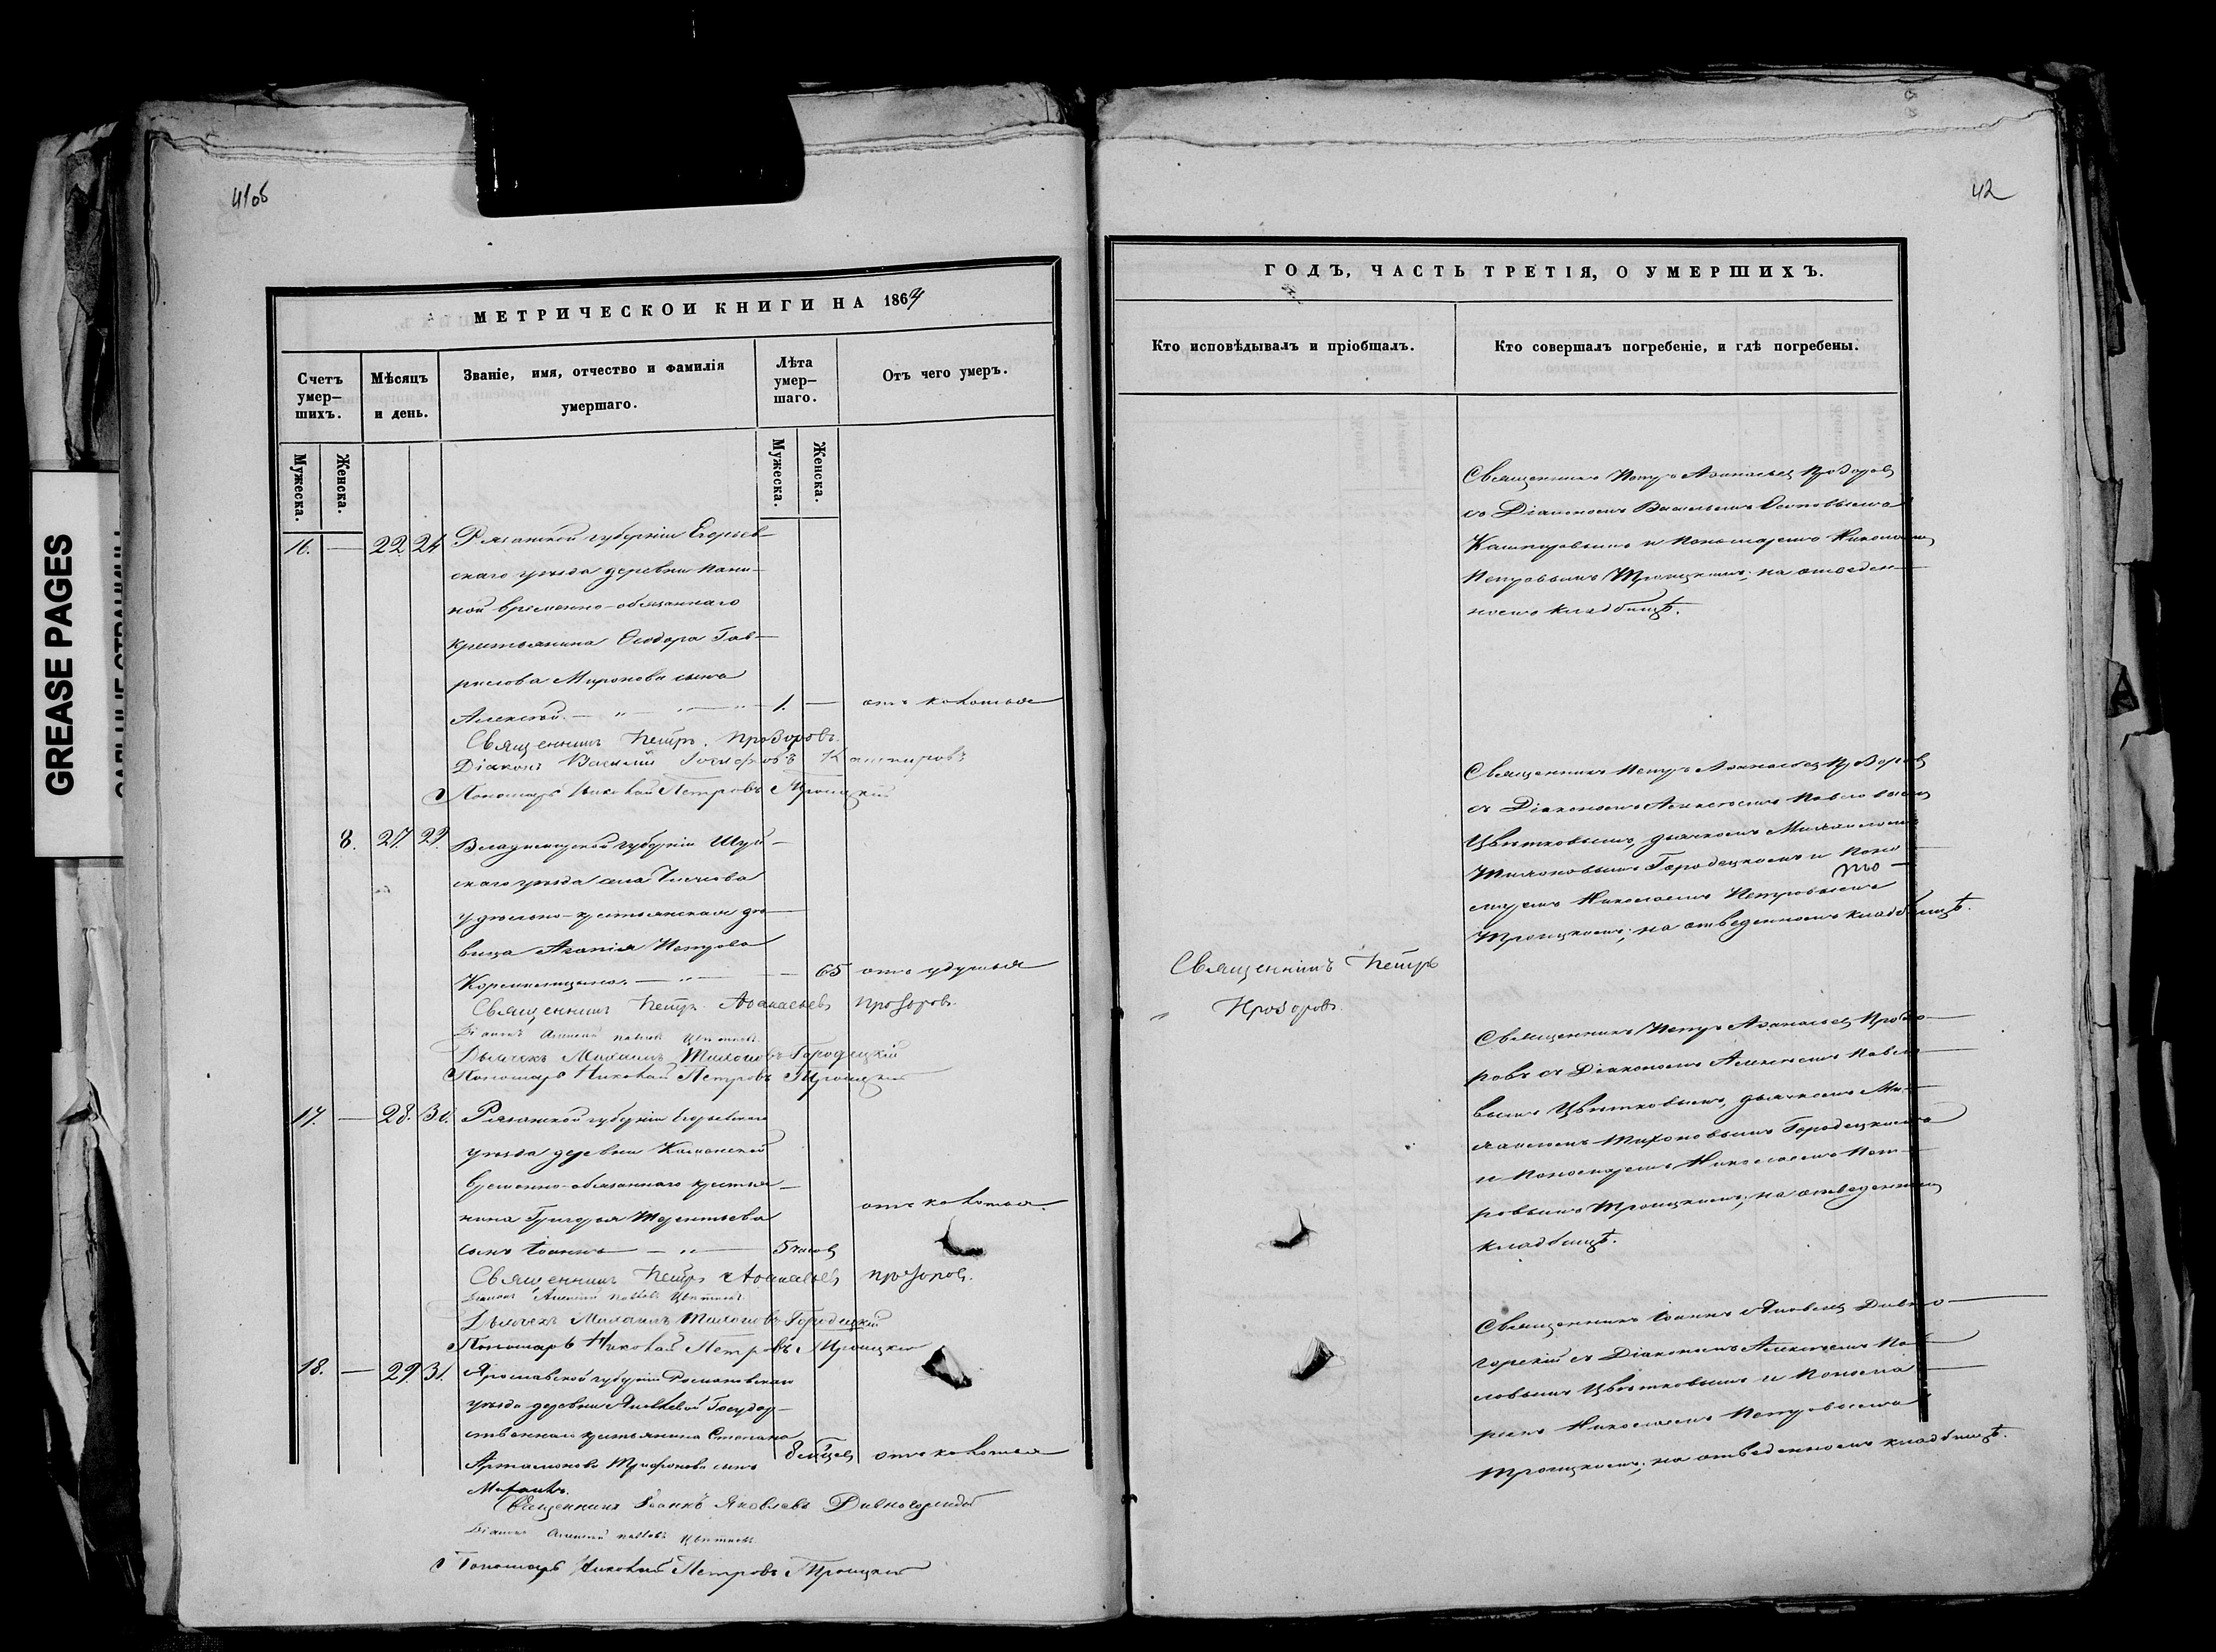 41об
МЕТРИЧЕСКОИ КНИГИ НА 1864
Счетъ умер-шихъ.
Мѣсяцъ и день.
Званіе, имя, отчество и фамилія умершаго.
Лѣта умер-шаго.
Отъ чего умеръ.
Мужеска.
Женска.
Мужеска.
Женска.
16. — 22 24 Рязанской губерніи Егорьев-
скаго уѣзда деревни Пани-
ной временно-обязаннаго
крестьянина Ѳеодора Гав-
рилова Миронова сынъ
Алексѣй. — " — " — " — 1. — отъ колотья
Священникъ Петръ Прозоровъ.
Діаконъ Василій Іосифовъ Кашпировъ
Пономарь Николай Петровъ Троицкій
8. 27. 29. Владимирской губерніи Шуй-
скаго уѣзда села
удѣльно-крестьянская дѣ-
вица Агапія Петрова
— " — — 65 отъ удушья
Священникъ Петръ Аѳанасьевъ Прозоровъ.
Діаконъ Алексѣй Павловъ Цвѣтковъ.
Дьячекъ Михаилъ Тихоновъ Городецкій
Пономарь Николай Петровъ Троицкій
17. — 28. 30. Рязанской губерніи Егорьевскаго
уѣзда деревни
временно-обязаннаго крестья-
нина Григорья Терентьева
отъ колотья.
сынъ Іоаннъ — " — 5 часов
Священникъ Петръ Аѳанасьевъ Прозоровъ.
Діаконъ Алексѣй Павловъ Цвѣтковъ
Дьячекъ Михаилъ Тихоновъ Городецкій
Пономарь Николай Петровъ Троицкій
18. — 29. 31. Ярославской губерніи Романовскаго
уѣзда деревни Государ-
ственнаго крестьянина Степана
Артамонова Трифонова сынъ 8 мѣсцев отъ колотья
Священникъ Іоаннъ Яковлевъ Дивногорскій
Діаконъ Алексѣй Павловъ Цвѣтковъ
Пономарь Николай Петровъ Троицкій
42
ГОДЪ, ЧАСТЬ ТРЕТІЯ, О УМЕРШИХЪ.
Кто исповѣдывалъ и пріобщалъ.
Кто совершалъ погребеніе, и гдѣ погребены.
Священникъ Петръ Аѳанасьевъ Прозоровъ
съ Діакономъ Васильемъ Осиповымъ
Кашпировымъ и Пономаремъ Николаемъ
Петровымъ Троицкимъ; на отведен-
номъ кладбищѣ.
Священникъ Петръ Аѳанасьевъ Прозоровъ
съ Діакономъ Алексѣемъ Павловымъ
Цвѣтковымъ, дьячкомъ Михаиломъ
Тихоновымъ Городецкимъ и Поно-
маремъ Николаемъ Петровымъ
Троицкимъ; на отведенномъ кладбищѣ.
Священникъ Петръ
Прозоровъ.
Священникъ Петръ Аѳанасьевъ Прозо-
ровъ съ Діакономъ Алексѣемъ Павло-
вымъ Цвѣтковымъ, дьячкомъ Ми-
хаиломъ Тихоновымъ Городецкимъ
и Пономаремъ Николаемъ Пет-
ровымъ Троицкимъ; на отведенномъ
кладбищѣ.
Священникъ Іоаннъ Яковлевъ Дивно-
горскій съ Діакономъ Алексѣемъ Пав-
ловымъ Цвѣтковымъ и Понома-
ремъ Николаемъ Петровымъ
Троицкимъ; на отведенномъ кладбищѣ.
GREASE PAGES